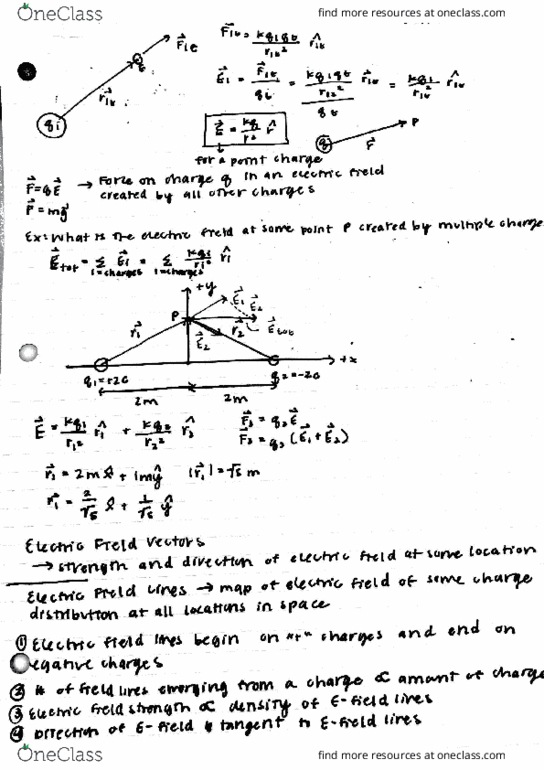 OneClass find more resources at oneclass.com
F⃗₁₀ = kq₁q₀/r₁₀² r̂₁₀
E⃗₁ = F⃗₁₀/q₀ = (kq₁q₀/r₁₀² r̂₁₀)/q₀ = kq₁/r₁₀² r̂₁₀
E⃗ = kq/r² r̂
for a point charge
F⃗=qE⃗ → Force on charge q in an electric field
created by all other charges
F⃗=mg⃗
Ex: What is the electric field at some point P created by multiple charge
E⃗tot = Σ i=charges E⃗i = Σ i=charges kqi/ri² r̂i
+y
P E⃗₁ E⃗₂
r⃗₁ r⃗₂ E⃗tot
E⃗₂
+x
q₁=+2C q₂=-2C
2m 2m
E⃗ = kq₁/r₁² r̂₁ + kq₂/r₂² r̂₂ F⃗₃ = q₃E⃗
F⃗₃ = q₃(E⃗₁+E⃗₂)
r⃗₁ = 2m x̂ + 1m ŷ |r⃗₁| = √5 m
r̂₁ = 2/√5 x̂ + 1/√5 ŷ
Electric Field Vectors
→ strength and direction of electric field at some location
Electric Field Lines → map of electric field of some charge
distribution at all locations in space
① Electric field lines begin on "+" charges and end on
negative charges
② # of field lines emerging from a charge ∝ amount of charge
③ Electric field strength ∝ density of E-field lines
④ Direction of E-field is tangent to E-field lines
OneClass find more resources at oneclass.com